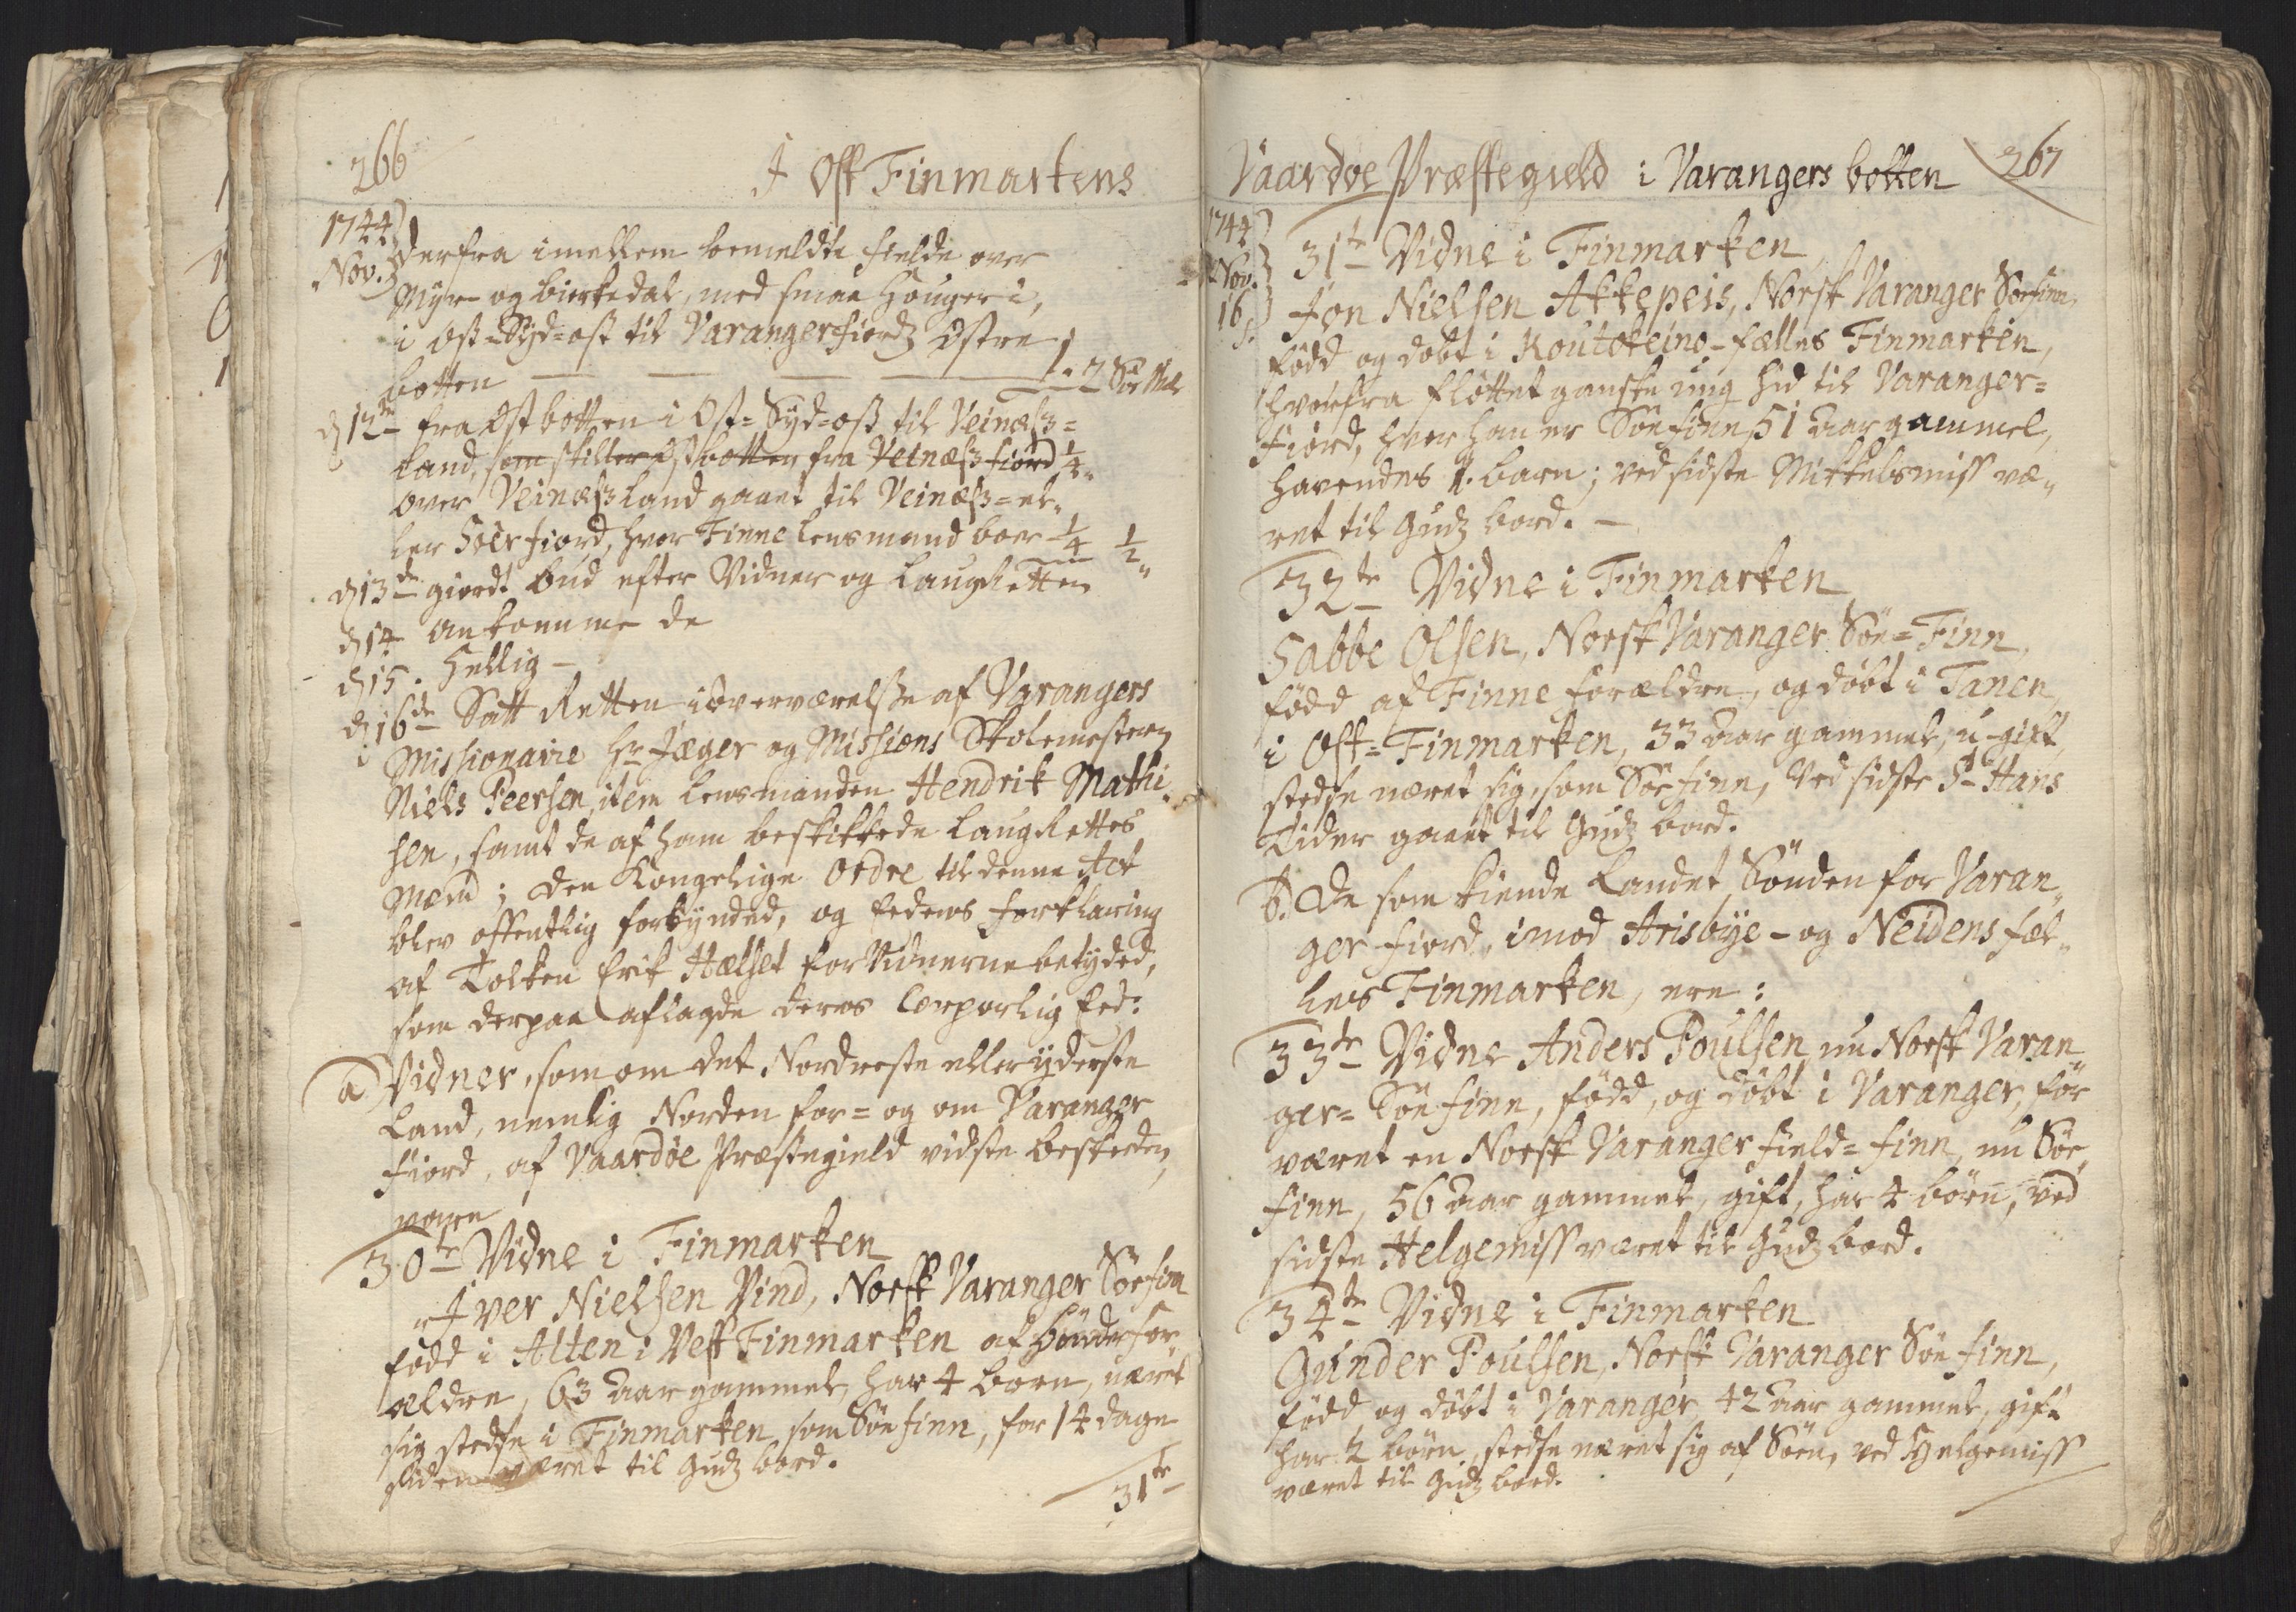 266
I Ost Finmarkens
1744
Nov.
Derfra imellem bemeldte Fielde over
Myr- og birkedal, med smaa Houger i,
i ost-Syd-ost til Varangerfiordz Østre
botten 1. 2 Söe Mile
d 12te fra Østbotten i Ost-Syd-ost til Veinæss=
land, som skiller Østbotten fra Veinæssfiord ¼
over Veinæss land gaaet til Veinæss= el„
ler Söer fiord, hvor Finne lensmand boer ¼ ½„
d 13de giordt bud efter Vidner og LaugRetten
d 14 ankomme de
d 15. Hellig -
d 16de Satt Retten i overværelsse af Varangers
Missionaire Hr Jæger og Missions Skolemesteren
Niels Peersen, item lensmanden Hendrik Mathi„
sen, samt de af ham beskikkede LaugRettes
Mænd; den Kongelige Ordre til denne Act
blev offentlig forkynded, og Eedens forklaring
af Tolken Erik Hælset for Vidnerne betyded,
som derpaa aflagde deres Corporlig Eed:
a Vidner, som om det Nordreste eller yderste
Land, nemlig Norden for= og om Varanger
fiord, af Vaardøe Præstegield vidste beskeden,
vare
30te Vidne i Finmarken
Iver Nielsen Vind, Norsk Varanger Söefinn
född i Alten i Vest Finmarken af bönder for„
ældre, 63 Aar gammel, har 4 börn, næret
sig stedse i Finmarken som Söe finn, for 14 dage
siden været til Gudz bord.
31te
Vaardoe Præstegield i Varangers botten 267
1744
Nov.
16
31te Vidne i Finmarken
Jon Nielsen Akkepeis, Norsk Varanger Söefinn,
född og döbt i Koutokeino-fælles Finmarken,
hvorfra flöttet ganske ung hid til Varanger=
fiord, hvor han er Söefinn, 51 Aar gammel,
havendes 1. barn; ved sidste Mikkelsmiss væ„
ret til Gudz bord. -
32te Vidne i Finmarken
Sabbe Olsen, Norsk Varanger Söe=Finn,
född af Finne forældre, og döbt i Tanen,
i Ost=Finmarken, 33 Aar gammel, u-gift,
stedse næret sig, som Söe finn, Ved sidste St Hans
Tider gaaet til Gudz bord.
b. De som kiende Landet Sönden for Varan„
ger fiord, imod Arisbye- og Neidens fæl„
lens Finmarken, ere:
33te Vidne Anders Poulsen, nu Norsk Varan„
ger= Söe finn, född, og döbt i Varanger, för
været en Norsk Varanger field=finn, nu Söe„
finn, 56 Aar gammel, gift, har 4 börn, ved
sidste Helgemiss været til Gudz bord.
34te Vidne i Finmarken
Gunder Poulsen, Norsk Varanger Söe finn,
född og döbt i Varanger, 42 Aar gammel, gift
har 2 börn, stedse næret sig af Söen, ved Helgemiss
været til Gudz bord.